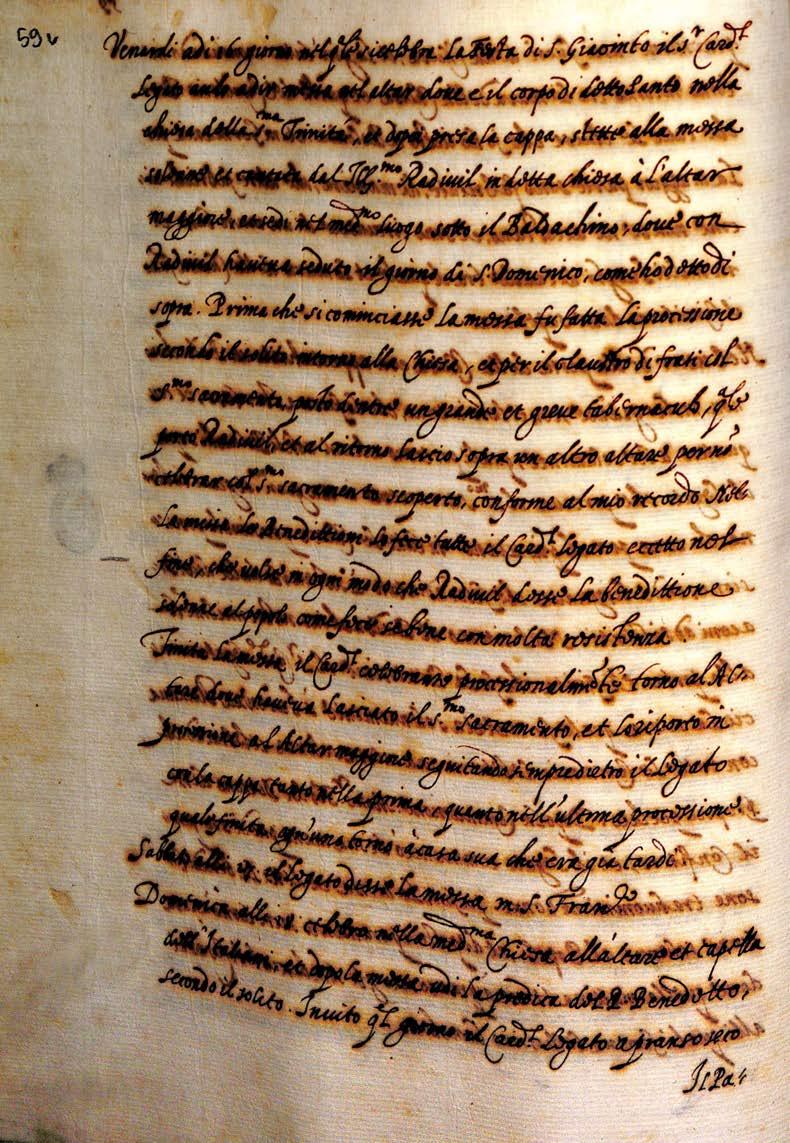 59v
Venerdi adi 16 giorno nel qle si celebra La Festa di S. Giacinto il sr Card.l
Legato andò adir messa all altar dove e il corpo di detto Santo nella
chiesa della s.ma Trinità, et dopoi presa la cappa, stette alla messa
solenne et cantata dal Ill.mo Radivil in detta chiesa à l'altar
maggiore, et sedi nel med.mo luogo sotto il Baldachino, dove con
Radivil haveva seduto il giorno di S. Domenico, come ho detto di
sopra. Prima che si cominciasse La messa fu fatta la processione
secondo il solito intorno alla Chiesa, et per il claustro di frati col
S.mo sacramento posto dentro un grande et greve tabernaculo, qle
porto Radivil, et al ritorno Lascio sopra un altro altare per nō
celebrar col s.mo sacramento scoperto, conforme al mio recordo. Nel-
La messa le Benedittioni le fece tutte il Card.l Legato eccetto nel
fine, che volse in ogni modo che Radivil desse La benedittione
solenne al popolo come fece se bene con molta resistenza
Finita La messa il Card.l celebrante processionalmēte torno al Al-
tare dove haveva Lasciato il s.mo sacramento, et lo riporto in
processione al Altar maggiore seguitando sempre dietro il Legato
con la cappa tanto nella prima, quanto nell'ultima processione
quale finita ogn'uno torno à casa sua che era già tardi
Sabbato alli 17 il Legato disse La messa in S. Fran.co
Domenica alli 18 celebro nella med.ma Chiesa all'altare et capella
dell'Italiani, et dopo la messa udi La predica del P. Benedetto,
secondo il solito. Invito ql giorno il Card.l Legato a pranso seco
Il Pa: